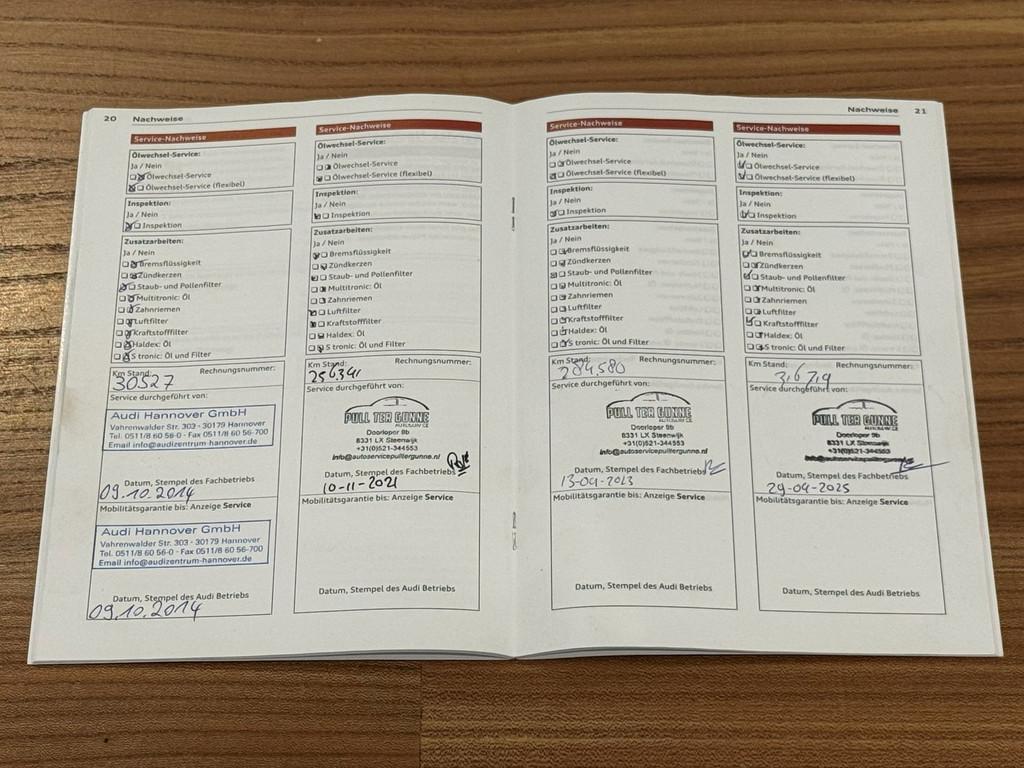 20 Nachweise
Service-Nachweise
Ölwechsel-Service:
Ja / Nein
Ölwechsel-Service
Ölwechsel-Service (flexibel)
Inspektion:
Ja / Nein
Inspektion
Zusatzarbeiten:
Ja / Nein
Bremsflüssigkeit
Zündkerzen
Staub- und Pollenfilter
Multitronic: Öl
Zahnriemen
Luftfilter
Kraftstofffilter
Haldex: Öl
S tronic: Öl und Filter
Km Stand: Rechnungsnummer:
30527
Service durchgeführt von:
Audi Hannover GmbH
Vahrenwalder Str. 303 - 30179 Hannover
Tel. 0511/8 60 56-0 - Fax 0511/8 60 56-700
Email info@audizentrum-hannover.de
Datum, Stempel des Fachbetriebs
09.10.2014
Mobilitätsgarantie bis: Anzeige Service
Audi Hannover GmbH
Vahrenwalder Str. 303 - 30179 Hannover
Tel. 0511/8 60 56-0 - Fax 0511/8 60 56-700
Email info@audizentrum-hannover.de
Datum, Stempel des Audi Betriebs
09.10.2014
Service-Nachweise
Ölwechsel-Service:
Ja / Nein
Ölwechsel-Service
Ölwechsel-Service (flexibel)
Inspektion:
Ja / Nein
Inspektion
Zusatzarbeiten:
Ja / Nein
Bremsflüssigkeit
Zündkerzen
Staub- und Pollenfilter
Multitronic: Öl
Zahnriemen
Luftfilter
Kraftstofffilter
Haldex: Öl
S tronic: Öl und Filter
Km Stand: Rechnungsnummer:
256341
Service durchgeführt von:
PULL TER GUNNE
Doorloper 9b
8331 LX Steenwijk
+31(0)521-344553
info@autoservicepulltergunne.nl
Datum, Stempel des Fachbetriebs
10-11-2021
Mobilitätsgarantie bis: Anzeige Service
Datum, Stempel des Audi Betriebs
Nachweise 21
Service-Nachweise
Ölwechsel-Service:
Ja / Nein
Ölwechsel-Service
Ölwechsel-Service (flexibel)
Inspektion:
Ja / Nein
Inspektion
Zusatzarbeiten:
Ja / Nein
Bremsflüssigkeit
Zündkerzen
Staub- und Pollenfilter
Multitronic: Öl
Zahnriemen
Luftfilter
Kraftstofffilter
Haldex: Öl
S tronic: Öl und Filter
Km Stand: Rechnungsnummer:
284580
Service durchgeführt von:
PULL TER GUNNE
Doorloper 9b
8331 LX Steenwijk
+31(0)521-344553
info@autoservicepulltergunne.nl
Datum, Stempel des Fachbetriebs
13-04-2023
Mobilitätsgarantie bis: Anzeige Service
Datum, Stempel des Audi Betriebs
Service-Nachweise
Ölwechsel-Service:
Ja / Nein
Ölwechsel-Service
Ölwechsel-Service (flexibel)
Inspektion:
Ja / Nein
Inspektion
Zusatzarbeiten:
Ja / Nein
Bremsflüssigkeit
Zündkerzen
Staub- und Pollenfilter
Multitronic: Öl
Zahnriemen
Luftfilter
Kraftstofffilter
Haldex: Öl
S tronic: Öl und Filter
Km Stand: Rechnungsnummer:
Service durchgeführt von:
PULL TER GUNNE
Doorloper 9b
8331 LX Steenwijk
+31(0)521-344553
Datum, Stempel des Fachbetriebs
29-04-2025
Mobilitätsgarantie bis: Anzeige Service
Datum, Stempel des Audi Betriebs